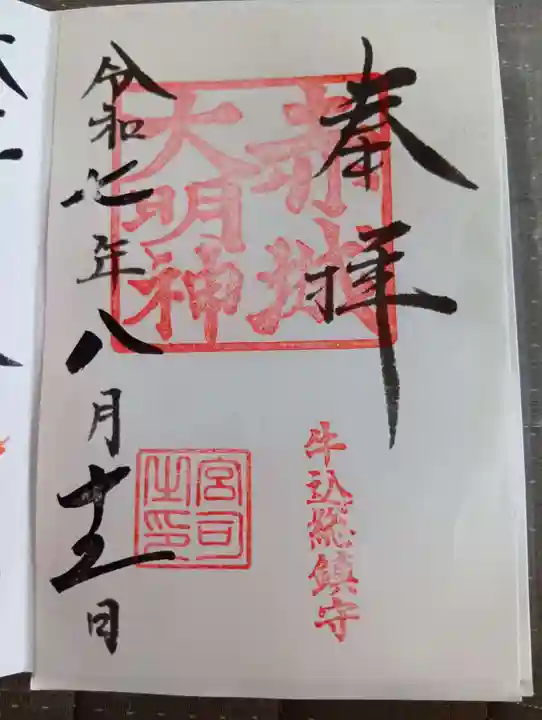 奉拝
赤城
大明神
牛込総鎮守
宮司
之印
令和七年八月十五日